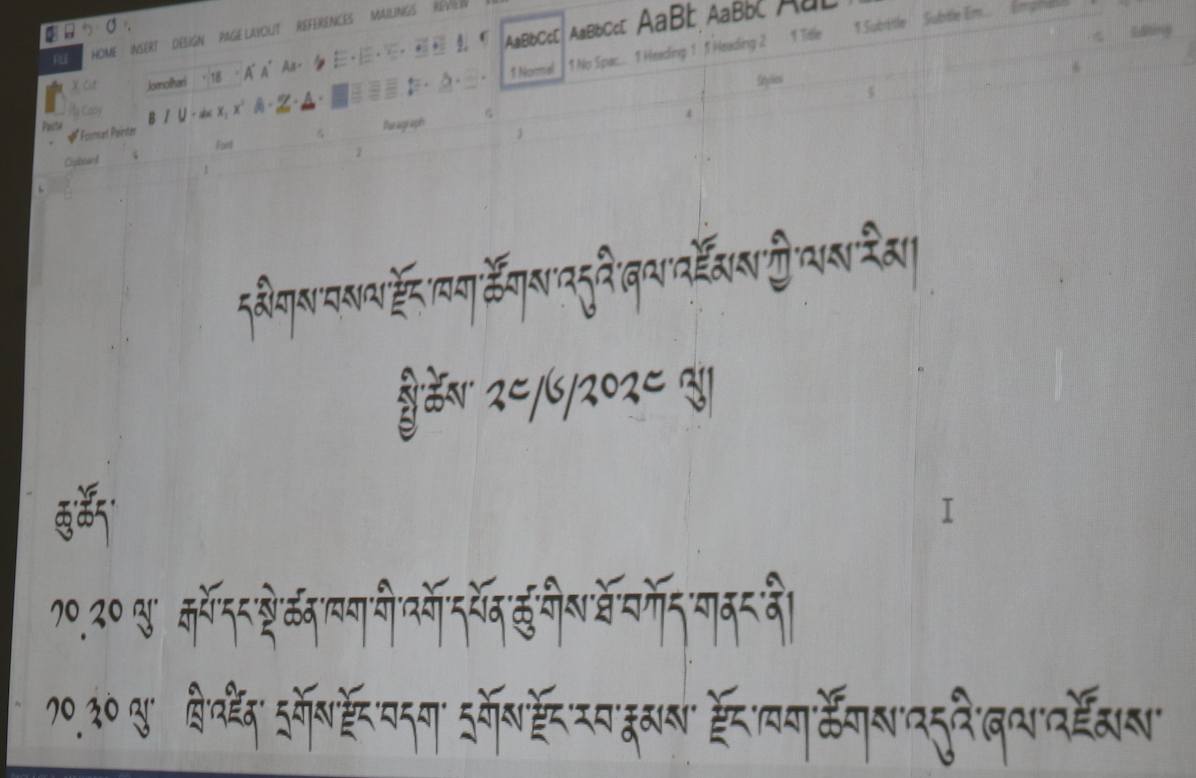 HOME INSERT DESIGN PAGE LAYOUT REFERENCES MAILINGS REVIEW
FILE
Cut
Copy
Paste Format Painter
Jomolhari 18
AaBbCcD AaBbCcD AaBb AaBbC
¶ Normal ¶ No Spac... ¶ Heading 1 ¶ Heading 2 ¶ Title ¶ Subtitle Subtle Em... Emphasis
Clipboard Font Paragraph Styles Editing
1 2 3 4 5 6
དམིགས་བསལ་རྫོང་ཁག་ཚོགས་འདུའི་ཞལ་འཛོམས་ཀྱི་ལས་རིམ།
སྤྱི་ཚེས་ ༢༤/༦/༢༠༢༤ ལུ།
ཆུ་ཚོད་
༡༠.༢༠ ལུ་ རྒཔོ་དང་སྡེ་ཚན་ཁག་གི་འགོ་དཔོན་ཚུ་གིས་ཐོ་བཀོད་གནང་ནི།
༡༠.༣༠ ལུ་ ཁྲི་འཛིན་ དྲགོས་རྫོང་བདག་ དྲགོས་རྫོང་རབ་རྣམས་ རྫོང་ཁག་ཚོགས་འདུའི་ཞལ་འཛོམས་